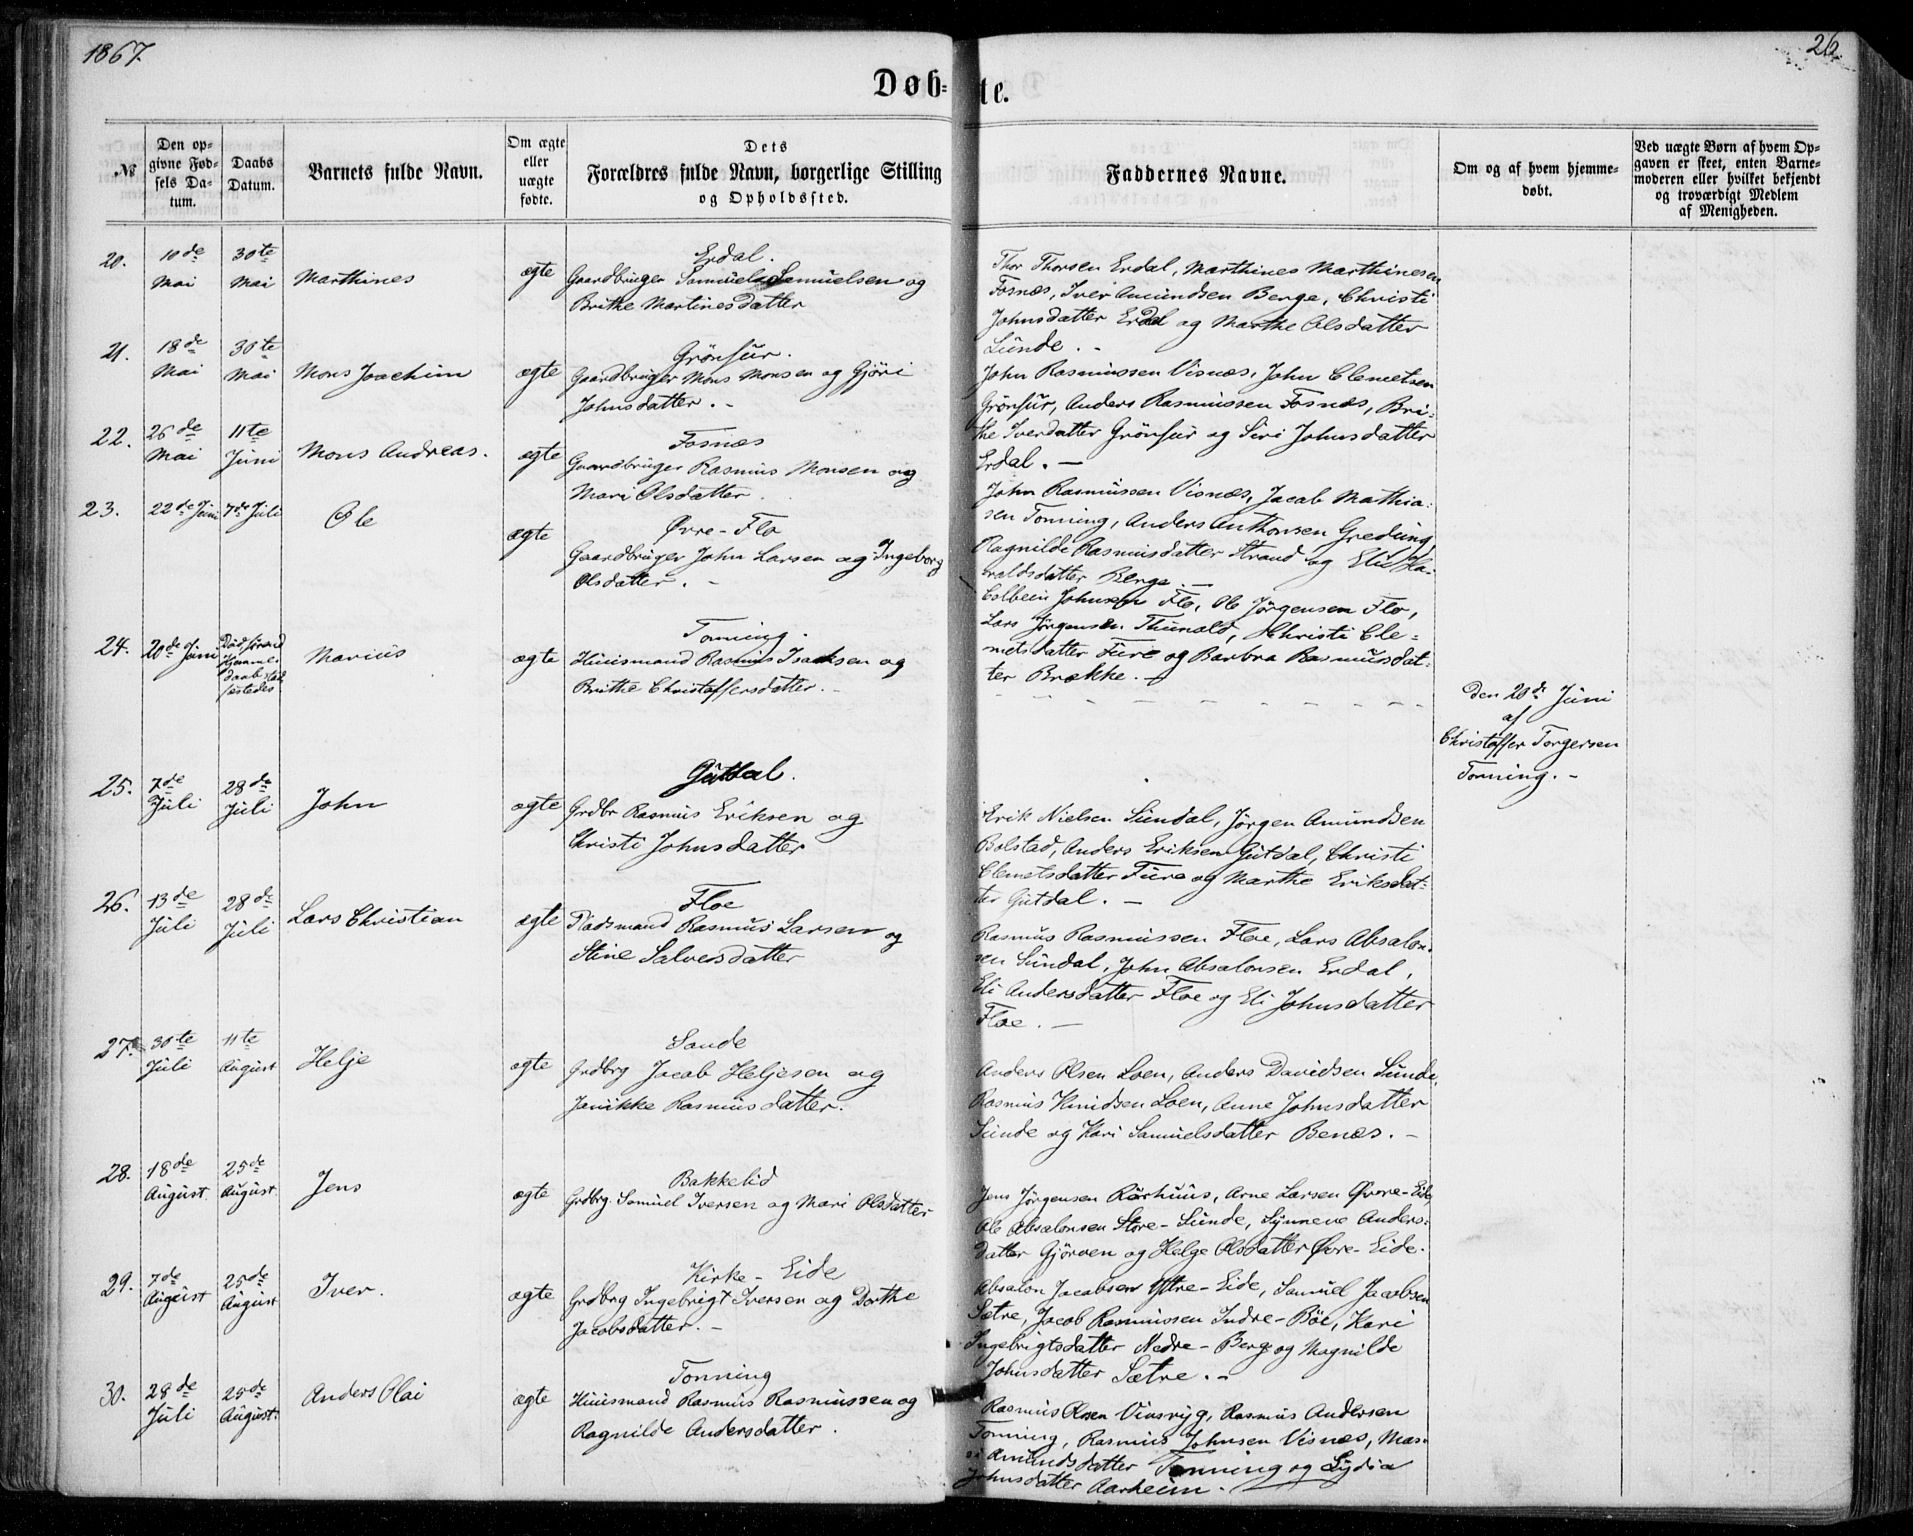 1867.
26
Døb=
te.
№
Den op-
givne Fød-
sels Da-
tum.
Daabs
Datum.
Barnets fulde Navn.
Om ægte
eller
uægte
fødte.
Dets
Forældres fulde Navn, borgerlige Stilling
og Opholdssted.
Faddernes Navne.
Om og af hvem hjemme-
døbt.
Ved uægte Børn af hvem Op-
gaven er skeet, enten Barne-
moderen eller hvilket bekjendt
og troværdigt Medlem
af Menigheden.
20.
10de
Mai
30te
Mai
Marthines
ægte
Erdal.
Gaardbruger Samuel Samuelsen og
Brithe Martinesdatter
Thor Thorsen Erdal, Marthines Marthinesen
Fosnæs, Iver Amundsen Berge, Christi
Johnsdatter Erdal og Marthe Olsdatter
Sunde. -
21.
18de
Mai
30te
Mai
Mons Joachim
ægte
Grönfur.
Gaardbruger Mons Monsen og Gjöri
Johnsdatter. -
John Rasmussen Visnæs, John Clemetsen
Grönfur, Anders Rasmussen Fosnæs, Bri-
the Iverdatter Grönfur og Siri Johnsdatter
Erdal. -
22.
26de
Mai
11te
Juni
Mons Andreas.
ægte
Fosnæs
Gaardbruger Rasmus Monsen og
Mari Olsdatter.
John Rasmussen Visnæs, Jacob Mathia-
sen Tonning, Anders Anthonsen Gredung,
Ragnilde Rasmusdatter Strand og Eli Ha-
raldsdatter Berge. -
23.
22de Juni
7de Juli
Ole
ægte
Øvre-Flo
Gaardbruger John Larsen og Ingeborg
Olsdatter. -
Colbein Johnsen Flo, Ole Jörgensen Flo,
Lars Jörgensen Thunold, Christi Cle-
metsdatter Fure og Barbra Rasmusdat-
ter Brække. -
24.
20de Juni
Död förend
Hjemme-
daab stad-
fæstedes
Marius
ægte
Tonning.
Huusmand Rasmus Isaksen og
Brithe Christaffersdatter. -
Den 20de Juni
af
Christaffer Torgersen
Tonning. -
25.
7de
Juli
28de
Juli
John
ægte
Gutdal.
Grdbr Rasmus Eriksen og
Christi Johnsdatter
Erik Nielsen Sundal, Jörgen Amundsen
Bolstad, Anders Eriksen Gutdal, Christi
Clemetsdatter Fure og Marthe Eriksdat-
ter Gutdal. -
26.
13de
Juli
28de
Juli
Lars Christian
ægte
Floe
Pladsmand Rasmus Larsen og
Stine Salvesdatter
Rasmus Rasmussen Floe, Lars Absalon-
sen Sundal, John Absalonsen Erdal,
Eli Andersdatter Floe og Eli Johnsdatter
Floe. -
27.
30te
Juli
11te
August
Helje
ægte
Sande
Grdbrg Jacob Heljesen og
Janikke Rasmusdatter.
Anders Olsen Loen, Anders Davidsen Sunde,
Rasmus Knudsen Loen, Anne Johnsdatter
Sunde og Kari Samuelsdatter Benæs. -
28.
18de
August.
25de
August.
Jens
ægte
Bakkelid
Grdbrg. Samuel Iversen og Mari Olsdatter
Jens Jörgensen Rörhuus, Arne Larsen Øvre-Eide,
Ole Absalonsen Store-Sunde, Synneve Anders-
datter Gjörven og Helge Olsdatter Øvre-Eide.
29.
7de
August
25de
August
Iver.
ægte
Kirke-Eide
Grdbrg Ingebrigt Iversen og Dorthe
Jacobsdatter. -
Absalon Jacobsen Ytre-Eide, Samuel Jacobsen
Sætre, Jacob Rasmussen Indre-Böe, Kari
Ingebrigtsdatter Nedre-Berg og Magnilde
Johnsdatter Sætre. -
30.
28de
Juli
25de
August.
Anders Olai
ægte
Tonning
Huusmand Rasmus Rasmussen og
Ragnilde Andersdatter.
Rasmus Olsen Vinsryg, Rasmus Andersen
Tonning, Rasmus Johnsen Visnæs, Mar-
i Amundsdatter Tonning og Lydia
Johnsdatter Aarheim. -